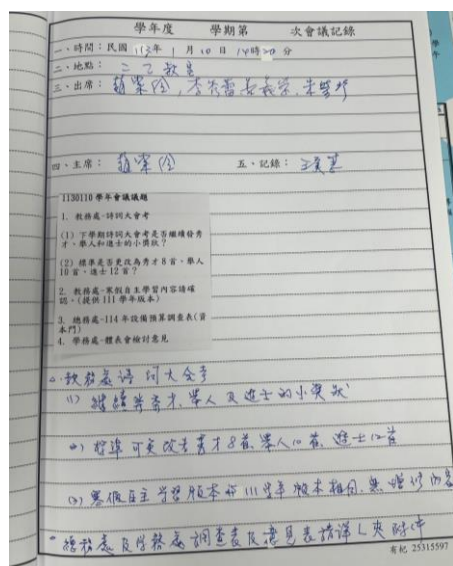 學年度 學期第 次會議記錄
一、時間：民國 113年 1 月 10 日 14時20 分
二、地點：二乙教室
三、出席：
四、主席： 五、記錄：
1130110 學年會議議題
1. 教務處-詩詞大會考
(1) 下學期詩詞大會考是否繼續發秀
才、舉人和進士的小獎狀？
(2) 標準是否更改為秀才 8 首、舉人
10 首、進士 12 首？
2. 教務處-寒假自主學習內容請確
認。(提供 111 學年版本)
3. 總務處-114 年設備預算調查表(資
本門)
4. 學務處-體表會檢討意見
教務處詩詞大會考
(1) 繼續發秀才、舉人及進士的小獎狀
(2) 標準可更改為秀才8首、舉人10首、進士12首
(3) 寒假自主學習版本和111學年版本相同，無增修內容
總務處及學務處調查表及意見表請詳見夾附件
有杞 25315597